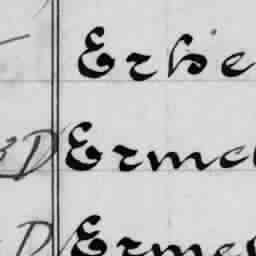 Erbe
3D Erme
D Erme